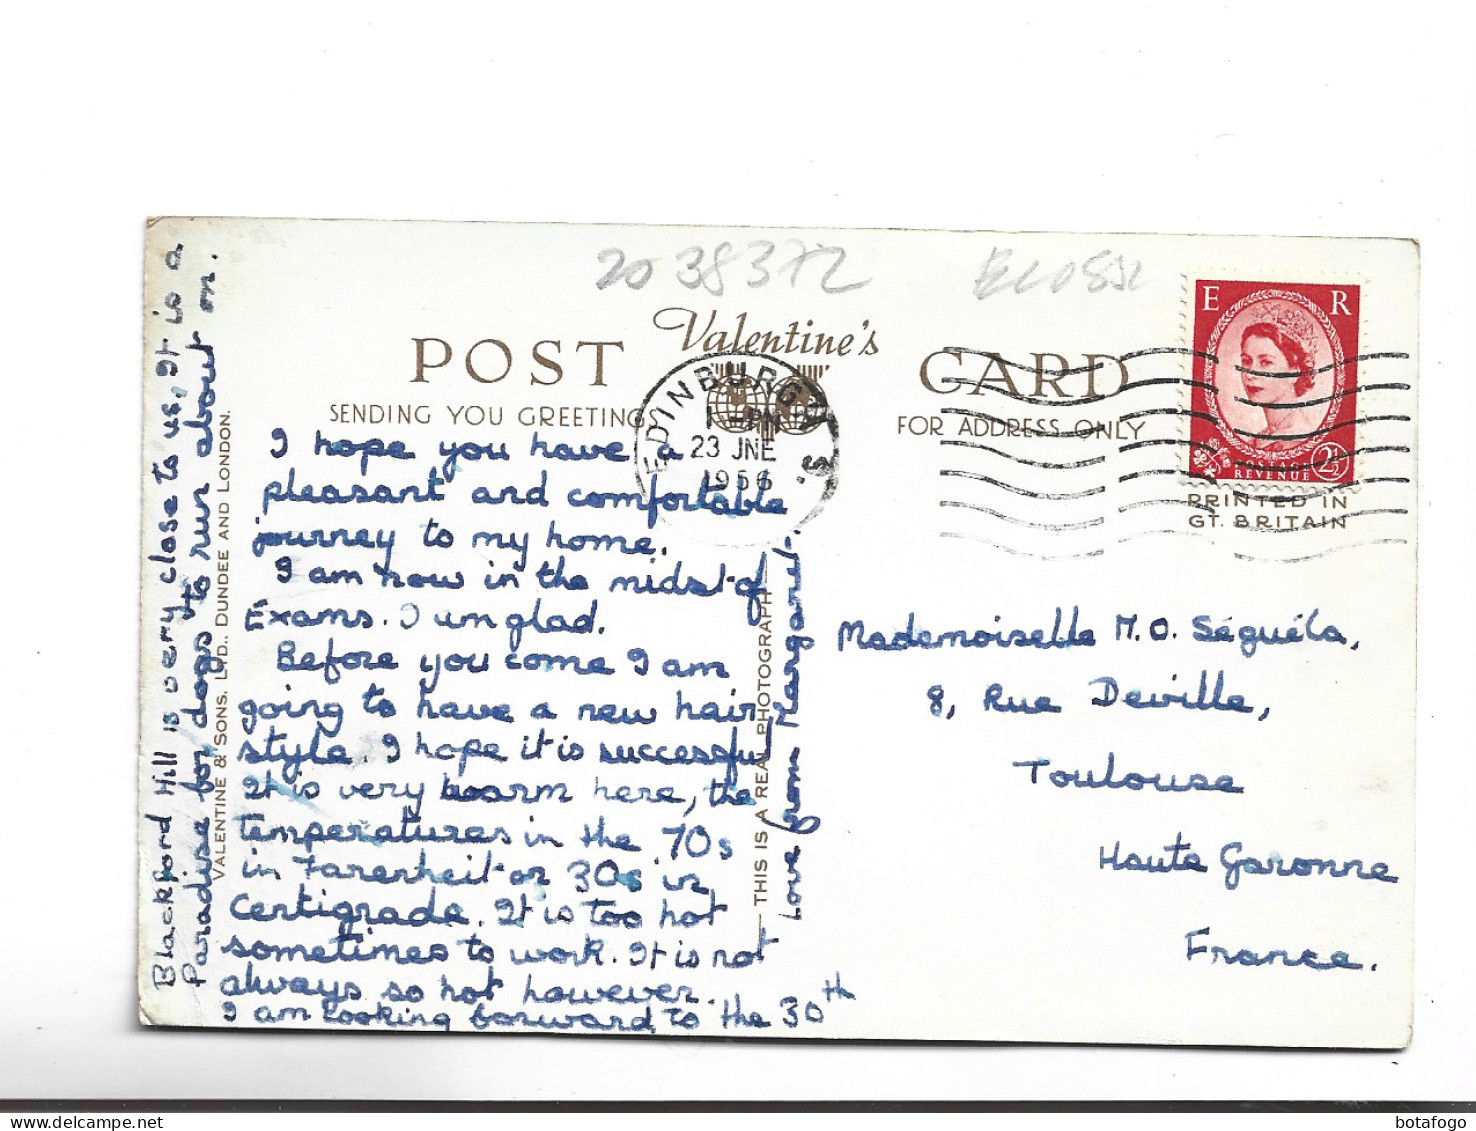 2038372
POST Valentine's CARD
SENDING YOU GREETINGS
FOR ADDRESS ONLY
EDINBURGH
1 - PM
23 JNE
1956
E R
REVENUE 2½
PRINTED IN
GT. BRITAIN
I hope you have a
pleasant and comfortable
journey to my home.
I am now in the midst of
Exams. I am glad.
Before you come I am
going to have a new hair
style. I hope it is successful
It is very warm here, the
temperatures in the 70s
in Farenheit or 30s in
Centigrade. It is too hot
sometimes to work. It is not
always so hot however.
I am looking forward to the 30th
Love from Margaret.
Blackford Hill is very close to us, It is a
Paradise for dogs to run about on.
VALENTINE & SONS. LTD.. DUNDEE AND LONDON.
THIS IS A REAL PHOTOGRAPH
Mademoiselle M. O. Séguéla,
8, Rue Deville,
Toulouse
Haute Garonne
France.
botafogo